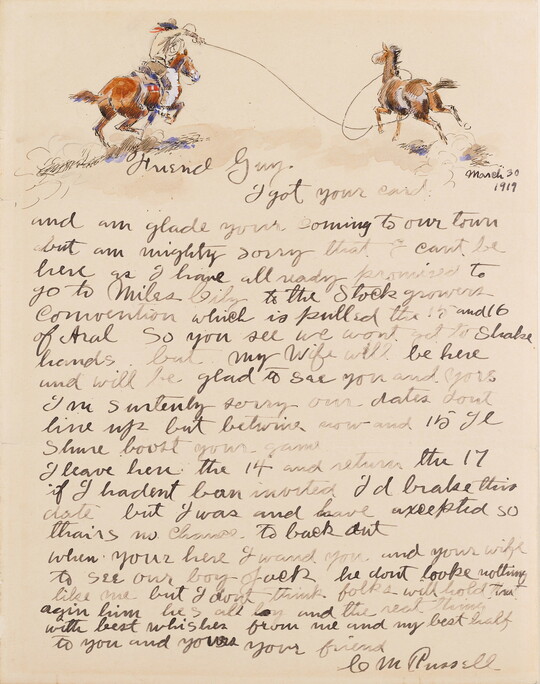 Friend Guy.
March 30
1919
I got your card
and am glade your coming to our town
but am mighty sorry that I cant be
here as I have allready promised to
go to Miles City to the Stock growers
Convention which is pulled the 15 and 16
of Aral so you see we wont get to Shake
hands but my Wife will be here
and will be glad to see you and yors
I'm surtenly sorry our dates dont
line up but betwine now and 15 Il
shure boost your game
I leave here the 14 and return the 17
if I hadent ban invited I'd brake this
date but I was and have axceptid so
thairs no chance to back out
when your here I want you and your wife
to see our boy Jack he dont looke nothing
like me but I dont think folks will hold
agin him hes all boy and the real thing
with best whishes from me and my best half
to you and yours your friend
C M Russell